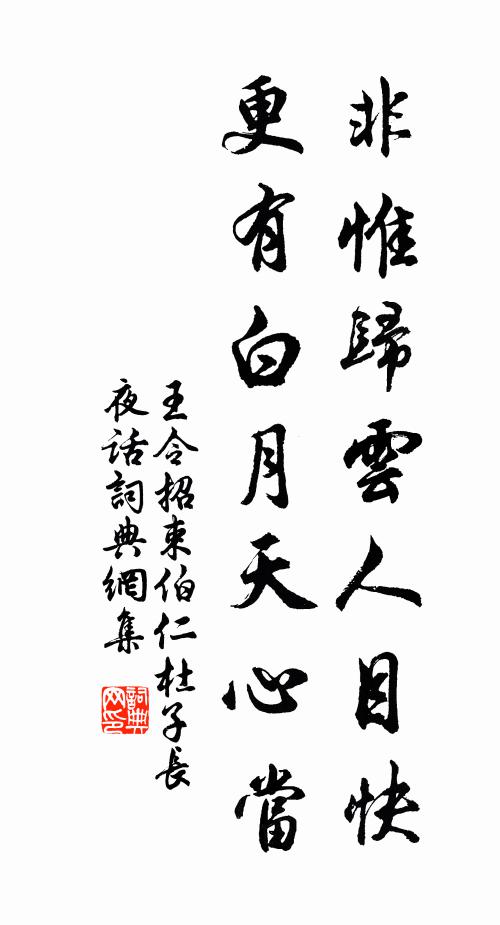 非惟歸雲人目快
更有白月天心當
王令招束伯仁杜子長
夜話詞典網集
詞典
网印